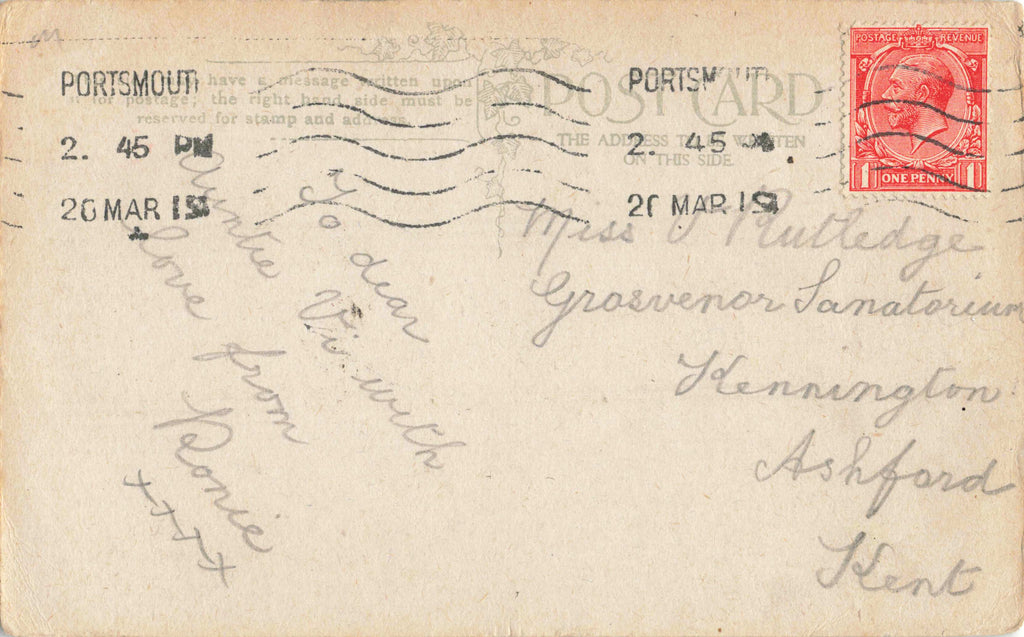 have a message written upon
it for postage; the right hand side must be
reserved for stamp and address.
POST CARD
THE ADDRESS TO BE WRITTEN
ON THIS SIDE
POSTAGE REVENUE
1 ONE PENNY 1
PORTSMOUTH
2. 45 PM
20 MAR
PORTSMOUTH
2. 45
MAR
To dear
Auntie Vi with
love from
Ronie
xxxx
Miss V Rutledge
Grosvenor Sanatorium
Kennington
Ashford
Kent